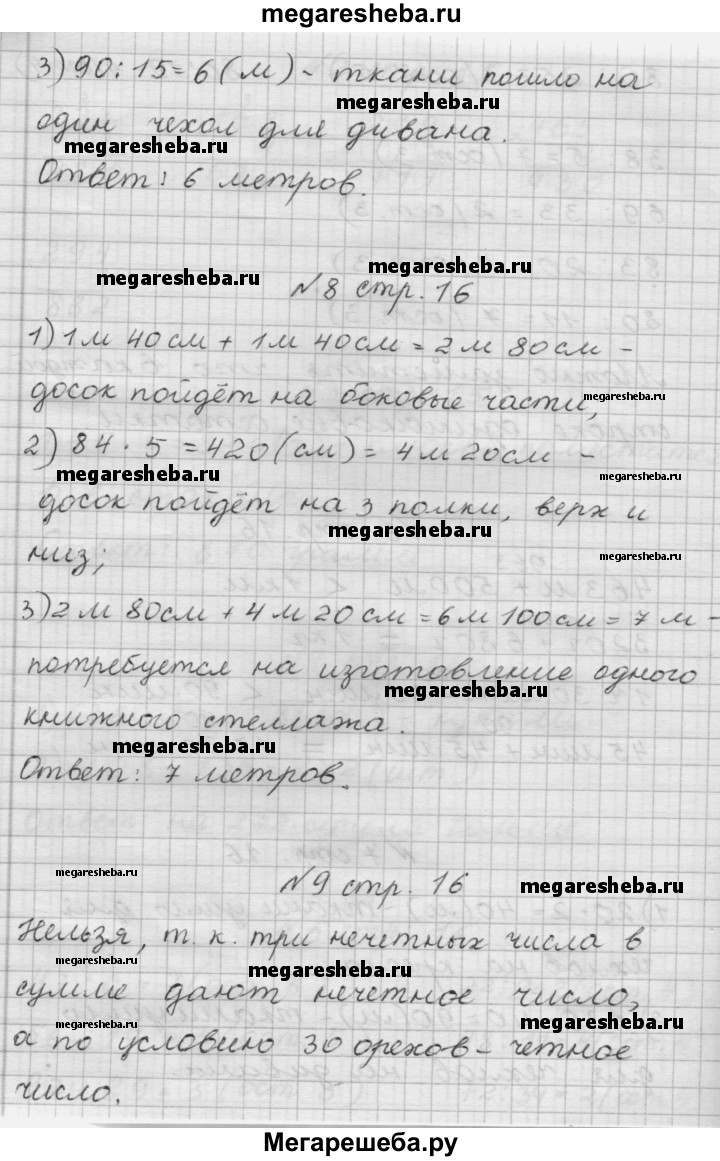 megaresheba.ru
3) 90 : 15 = 6 (м) - ткани пошло на
megaresheba.ru
один чехол для дивана.
megaresheba.ru
Ответ: 6 метров.
megaresheba.ru
megaresheba.ru
№8 стр. 16
1) 1 м 40 см + 1 м 40 см = 2 м 80 см -
досок пойдёт на боковые части,
megaresheba.ru
2) 84 · 5 = 420 (см) = 4 м 20 см -
megaresheba.ru
досок пойдёт на 3 полки, верх и
megaresheba.ru
низ;
megaresheba.ru
3) 2 м 80 см + 4 м 20 см = 6 м 100 см = 7 м -
потребуется на изготовление одного
megaresheba.ru
книжного стеллажа.
megaresheba.ru
Ответ: 7 метров.
megaresheba.ru
№9 стр. 16
megaresheba.ru
Нельзя, т. к. три нечетных числа в
megaresheba.ru
megaresheba.ru
сумме дают нечетное число,
megaresheba.ru
а по условию 30 орехов - четное
число.
Мегарешеба.ру